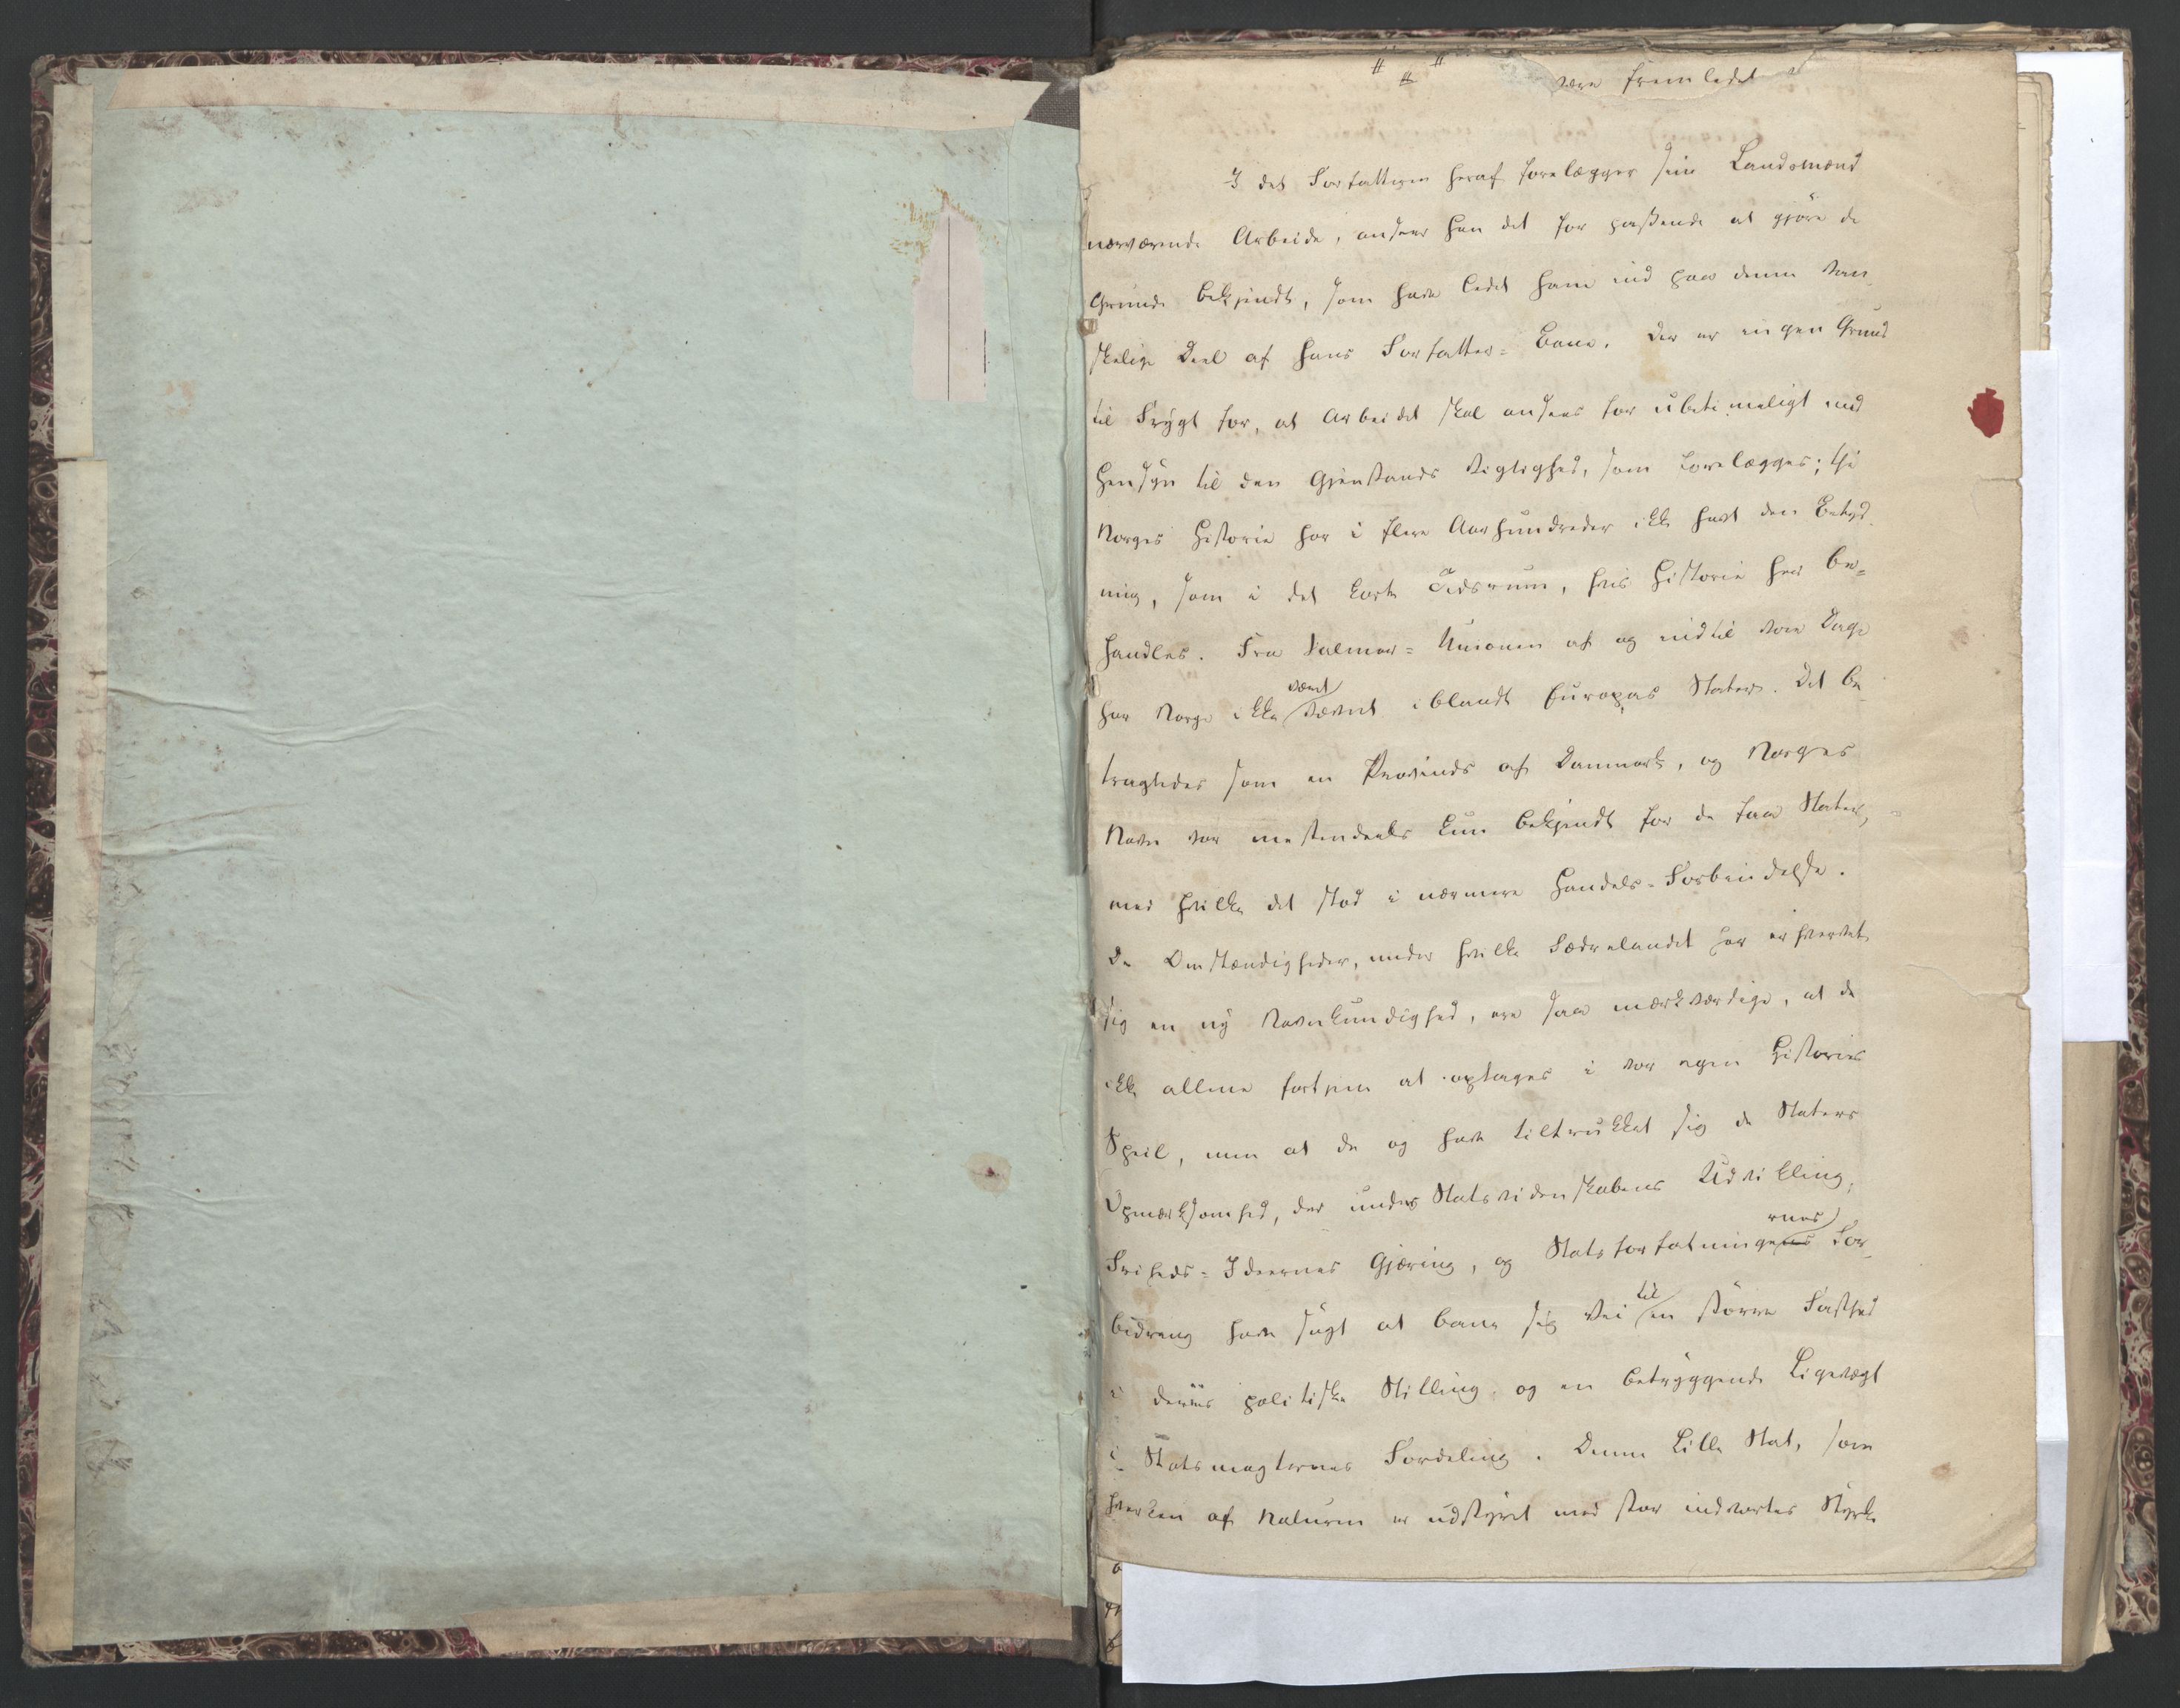 være fremledet
I det Forfatteren heraf forelægger sine Landsmænd
nærværende Arbeide, anseer han det for passende at gjöre de
Grunde bekjendt, som have ledet ham ind paa denne van-
skelige Deel af hans Forfatter-Bane. Der er ingen Grund
til Frygt for, at Arbeidet skal ansees for ubetimeligt med
Hensyn til den Gjenstands Vigtighed, som forelægges; thi
Norges Historie har i flere Aarhundreder ikke havt den Betyd-
ning, som i det korte Tidsrum, hvis Historie her be-
handles. Fra Kalmar-Unionen af og indtil vore Dage
har Norge ikke været iblandt Europas Stater. Det be-
tragtedes som en Provinds af Danmark, og Norges
Navn var mestendeels kun bekjendt for de faa Stater,
med hvilke det stod i nærmere Handels-Forbindelse.
De Omstændigheder, under hvilke Fædrelandet har erhvervet
sig en ny Navnkundighed, ere saa mærkværdige, at de
ikke allene fortjene at optages i vor egen Histories
Speil, men at de og have tiltrukket sig de Staters
Opmærksomhed, der under Statsvidenskabens Udvikling,
Friheds-Ideernes Gjæring, og Statsforfatningernes For-
bedring have sögt at bane sig Vei til en större Fasthed
i deres politiske Stilling, og en betryggende Ligevægt
i Statsmagternes Fordeling. Denne Lille Stat, som
hverken af Naturen er udstyret med stor indvortes Styrke